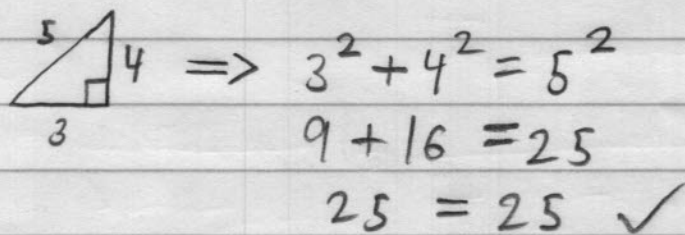 5
4 => 3² + 4² = 5²
3
9 + 16 = 25
25 = 25 ✓